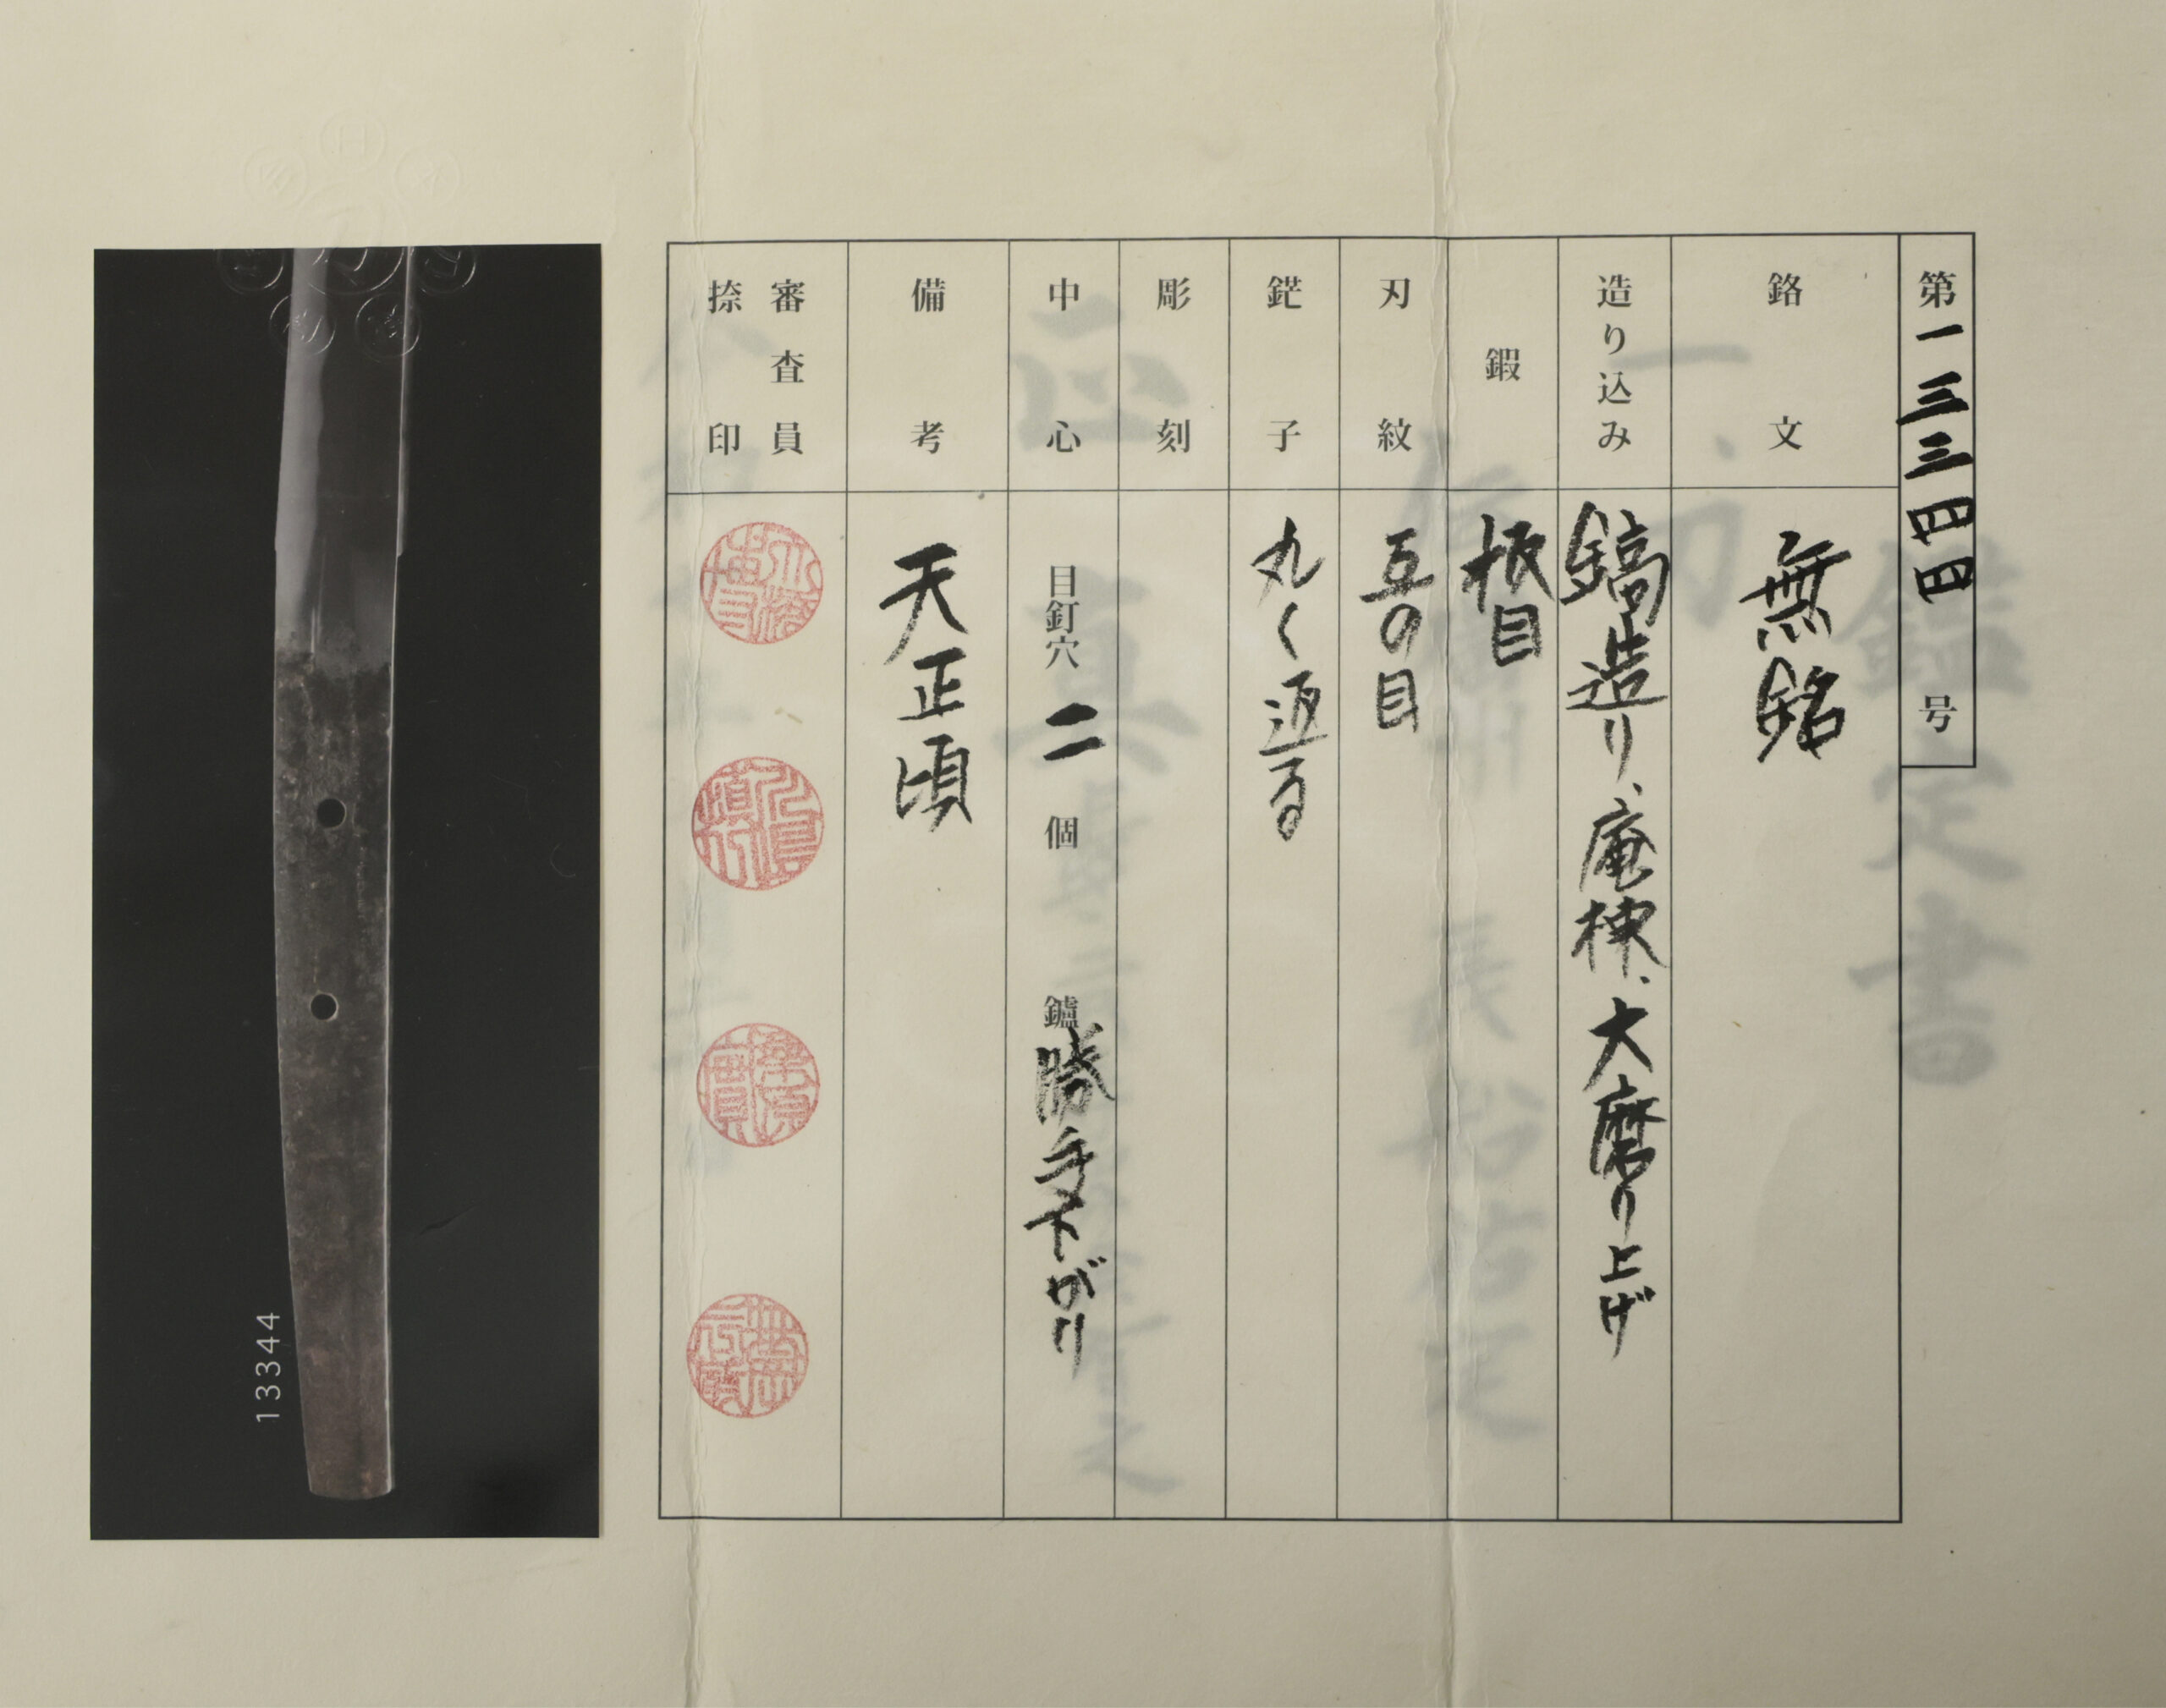 第一三三四四号
銘文
無銘
造り込み
鎬造り、庵棟、大磨り上げ
鍜
板目
刃紋
互の目
鋩子
丸く返る
彫刻
中心
目釘穴 二 個 鑪 勝手下がり
備考
天正頃
審査員
捺印
13344